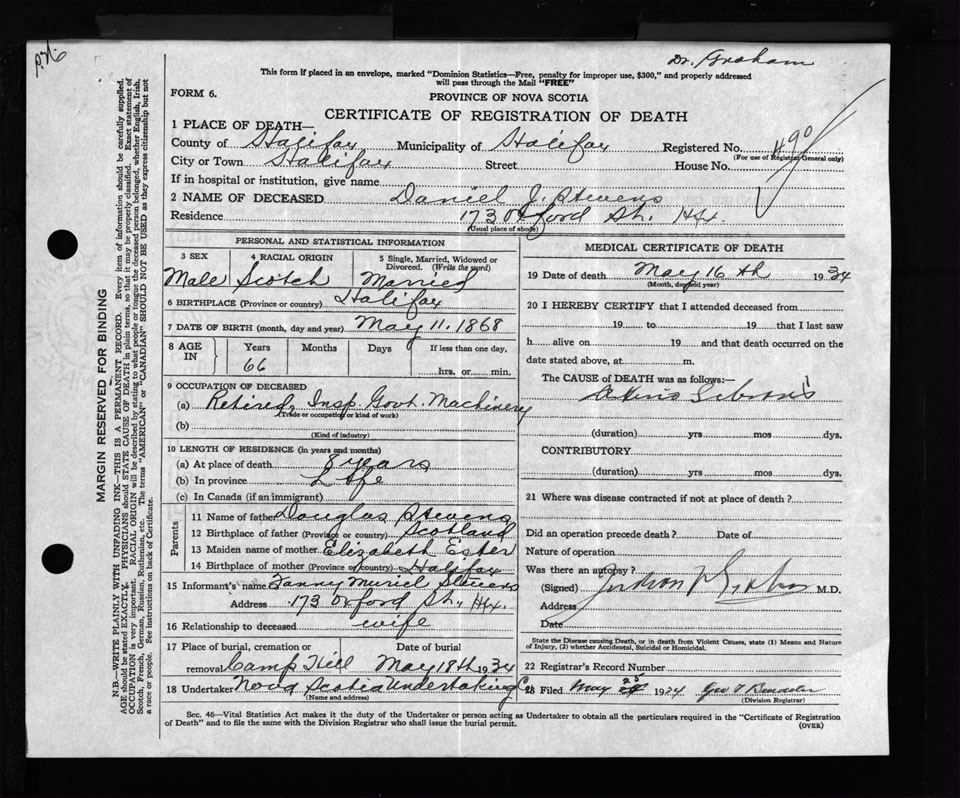 Dr. Graham
This form if placed in an envelope, marked "Dominion Statistics—Free, penalty for improper use, $300," and properly addressed
will pass through the Mail "FREE"
FORM 6.
PROVINCE OF NOVA SCOTIA
CERTIFICATE OF REGISTRATION OF DEATH
1 PLACE OF DEATH—
County of Halifax Municipality of Halifax Registered No. 490
(For use of Registrar General only)
City or Town Halifax Street House No.
If in hospital or institution, give name
2 NAME OF DECEASED Daniel J. Stevens
Residence 173 Oxford St. Hfx.
(Usual place of abode)
PERSONAL AND STATISTICAL INFORMATION
3 SEX 4 RACIAL ORIGIN 5 Single, Married, Widowed or
Divorced. (Write the word)
Male Scotch Married
6 BIRTHPLACE (Province or country) Halifax
7 DATE OF BIRTH (month, day and year) May 11. 1868
8 AGE IN Years Months Days If less than one day,
66 hrs. or min.
9 OCCUPATION OF DECEASED
(a) Retired, Insp. Govt. Machinery
(Trade or occupation or kind of work)
(b)
(Kind of industry)
10 LENGTH OF RESIDENCE (in years and months)
(a) At place of death 8 years
(b) In province Life
(c) In Canada (if an immigrant)
Parents
11 Name of father Douglas Stevens
12 Birthplace of father (Province or country) Scotland
13 Maiden name of mother Elizabeth Ester
14 Birthplace of mother (Province or country) Halifax
15 Informant's name Fanny Muriel Stevens
Address 173 Oxford St. Hfx.
16 Relationship to deceased wife
17 Place of burial, cremation or Date of burial
removal Camp Hill May 18th 1934
18 Undertaker Nova Scotia Undertaking Co
(Name and address)
MEDICAL CERTIFICATE OF DEATH
19 Date of death May 16th 1934
(Month, day and year)
20 I HEREBY CERTIFY that I attended deceased from
19 to 19 that I last saw
h alive on 19 and that death occurred on the
date stated above, at m.
The CAUSE of DEATH was as follows:—
(duration) yrs mos dys.
CONTRIBUTORY
(duration) yrs mos dys.
21 Where was disease contracted if not at place of death?
Did an operation precede death? Date of
Nature of operation
Was there an autopsy?
(Signed) M.D.
Address
Date
State the Disease causing Death, or in death from Violent Causes, state (1) Means and Nature
of Injury, (2) whether Accidental, Suicidal or Homicidal.
22 Registrar's Record Number
23 Filed May 25 1934
(Division Registrar)
Sec. 46—Vital Statistics Act makes it the duty of the Undertaker or person acting as Undertaker to obtain all the particulars required in the "Certificate of Registration
of Death" and to file the same with the Division Registrar who shall issue the burial permit.
(OVER)
MARGIN RESERVED FOR BINDING
N.B.—WRITE PLAINLY WITH UNFADING INK—THIS IS A PERMANENT RECORD. Every item of information should be carefully supplied.
AGE should be stated EXACTLY. PHYSICIANS should STATE CAUSE OF DEATH in plain terms, so that it may be properly classified. Exact statement of
OCCUPATION is very important. RACIAL ORIGIN will be described by stating to what people or tongue the deceased person belonged, whether English, Irish,
Scotch, French, German, Russian, Ruthenian, etc. The terms "AMERICAN" or "CANADIAN" SHOULD NOT BE USED as they express citizenship but not
a race or people. See instructions on back of Certificate.